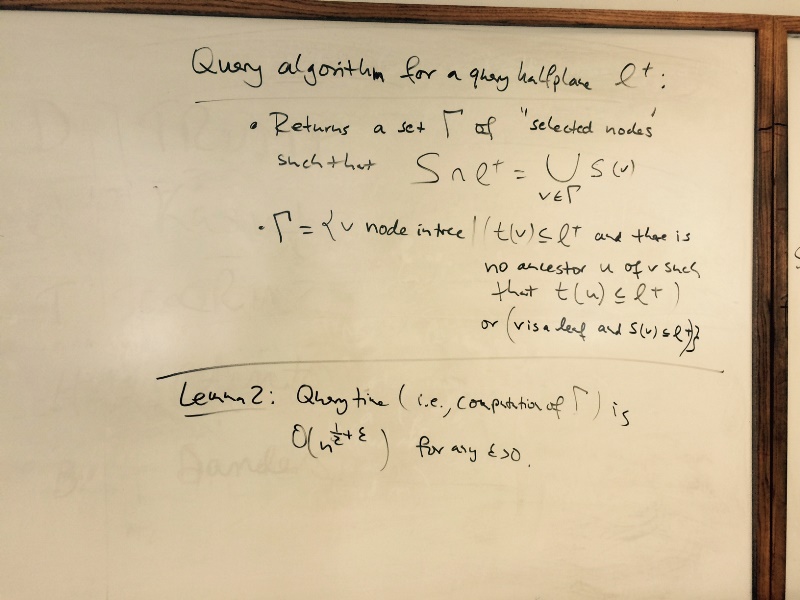 Query algorithm for a query halfplane ℓ⁺:
• Returns a set Γ of "selected nodes"
such that S ∩ ℓ⁺ = ⋃_{v∈Γ} S(v)
• Γ = {v node in tree | (t(v) ⊆ ℓ⁺ and there is
no ancestor u of v such
that t(u) ⊆ ℓ⁺)
or (v is a leaf and S(v) ⊆ ℓ⁺)}
Lemma 2: Query time (i.e., computation of Γ) is
O(n^{1/2+ε}) for any ε>0.